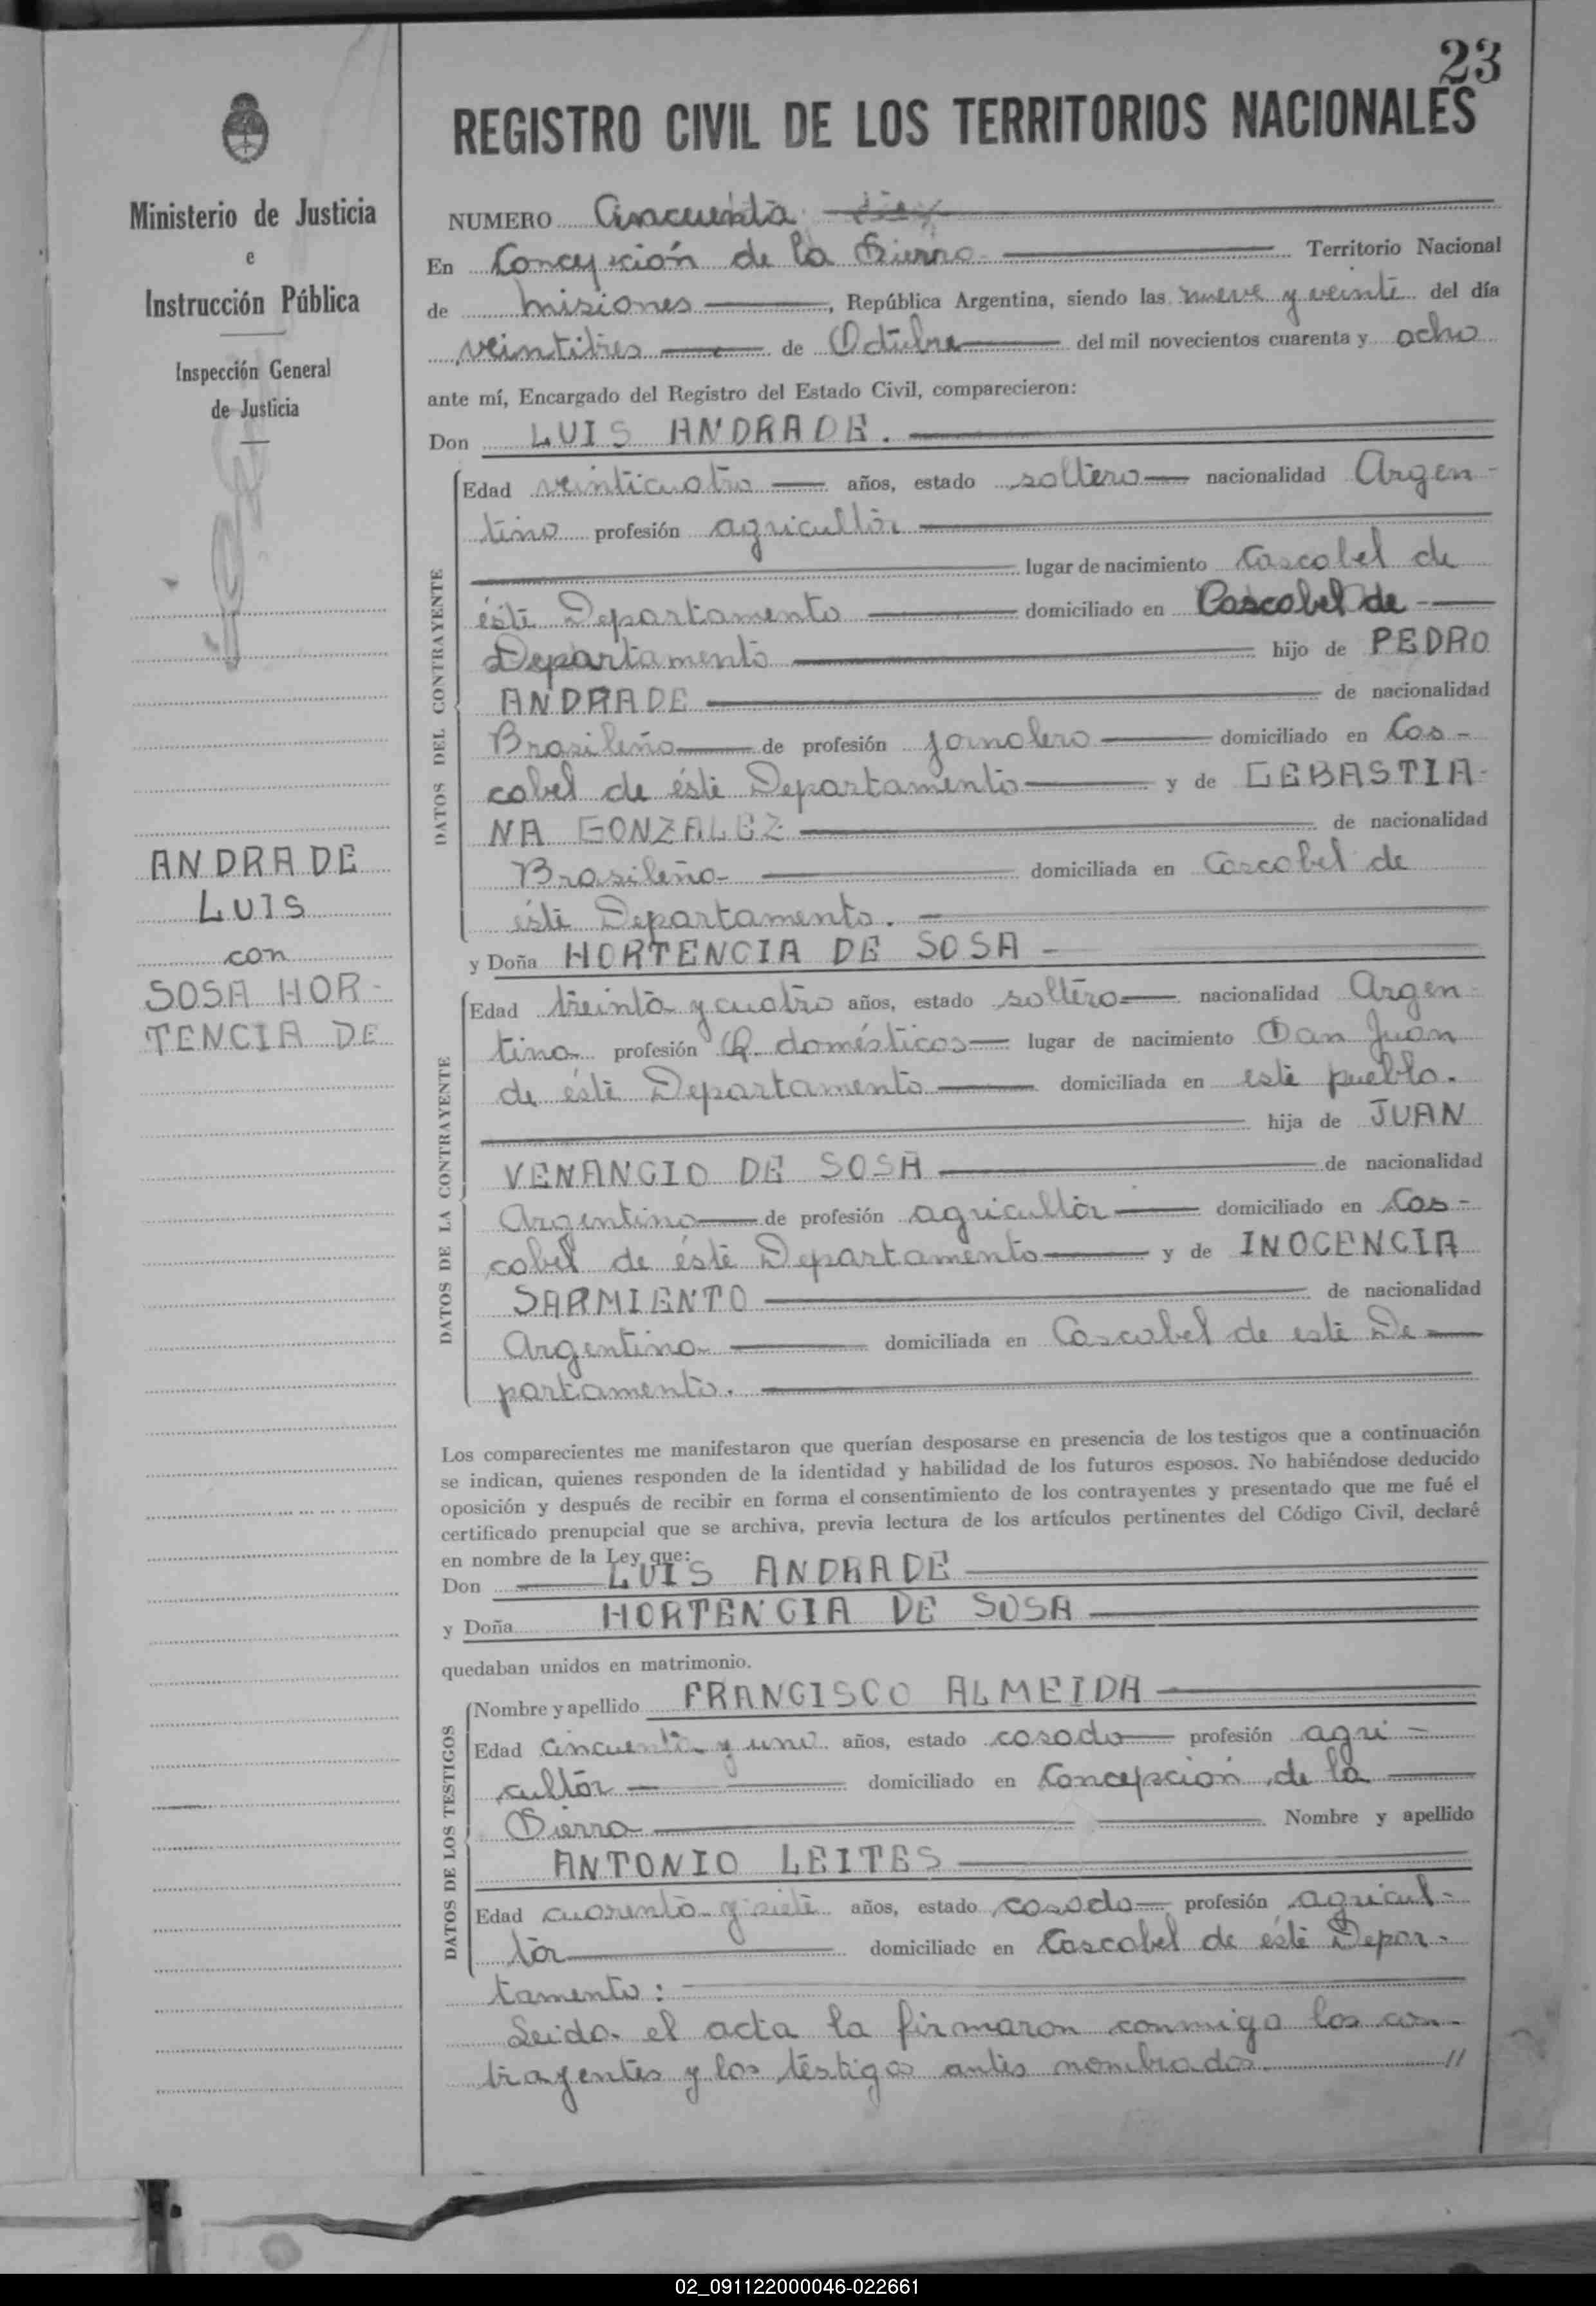 23
REGISTRO CIVIL DE LOS TERRITORIOS NACIONALES
Ministerio de Justicia
e
Instrucción Pública
Inspección General
de Justicia
ANDRADE
LUIS
con
SOSA HOR-
TENCIA DE
NUMERO Cincuenta
En Concepción de la Sierra Territorio Nacional
de Misiones, República Argentina, siendo las nueve y veinte del día
veintitres de Octubre del mil novecientos cuarenta y ocho
ante mí, Encargado del Registro del Estado Civil, comparecieron:
Don LUIS ANDRADE.
DATOS DEL CONTRAYENTE
Edad veinticuatro años, estado soltero nacionalidad Argen-
tino profesión agricultor
lugar de nacimiento Cascabel de
éste Departamento domiciliado en Cascabel de
Departamento hijo de PEDRO
ANDRADE de nacionalidad
Brasileña de profesión jornalero domiciliado en Cas-
cabel de éste Departamento y de SEBASTIA-
NA GONZALEZ de nacionalidad
Brasileña domiciliada en Cascabel de
éste Departamento.
y Doña HORTENCIA DE SOSA -
DATOS DE LA CONTRAYENTE
Edad treinta y cuatro años, estado soltera nacionalidad Argen-
tina profesión Q. domésticos lugar de nacimiento San Juan
de éste Departamento domiciliada en este pueblo.
hija de JUAN
VENANCIO DE SOSA de nacionalidad
Argentina de profesión agricultor domiciliado en Cas-
cabel de éste Departamento y de INOCENCIA
SARMIENTO de nacionalidad
Argentina domiciliada en Cascabel de este De-
partamento.
Los comparecientes me manifestaron que querían desposarse en presencia de los testigos que a continuación
se indican, quienes responden de la identidad y habilidad de los futuros esposos. No habiéndose deducido
oposición y después de recibir en forma el consentimiento de los contrayentes y presentado que me fué el
certificado prenupcial que se archiva, previa lectura de los artículos pertinentes del Código Civil, declaré
en nombre de la Ley que:
Don LUIS ANDRADE
y Doña HORTENCIA DE SOSA
quedaban unidos en matrimonio.
DATOS DE LOS TESTIGOS
Nombre y apellido FRANCISCO ALMEIDA
Edad cincuenta y uno años, estado casado profesión agri-
cultor domiciliado en Concepción de la
Sierra Nombre y apellido
ANTONIO LEITES
Edad cuarenta y siete años, estado casado profesión agricul-
tor domiciliado en Cascabel de éste Depar-
tamento:
Leida el acta la firmaron conmigo los con-
trayentes y los testigos antes nombrados //
02_091122000046-022661